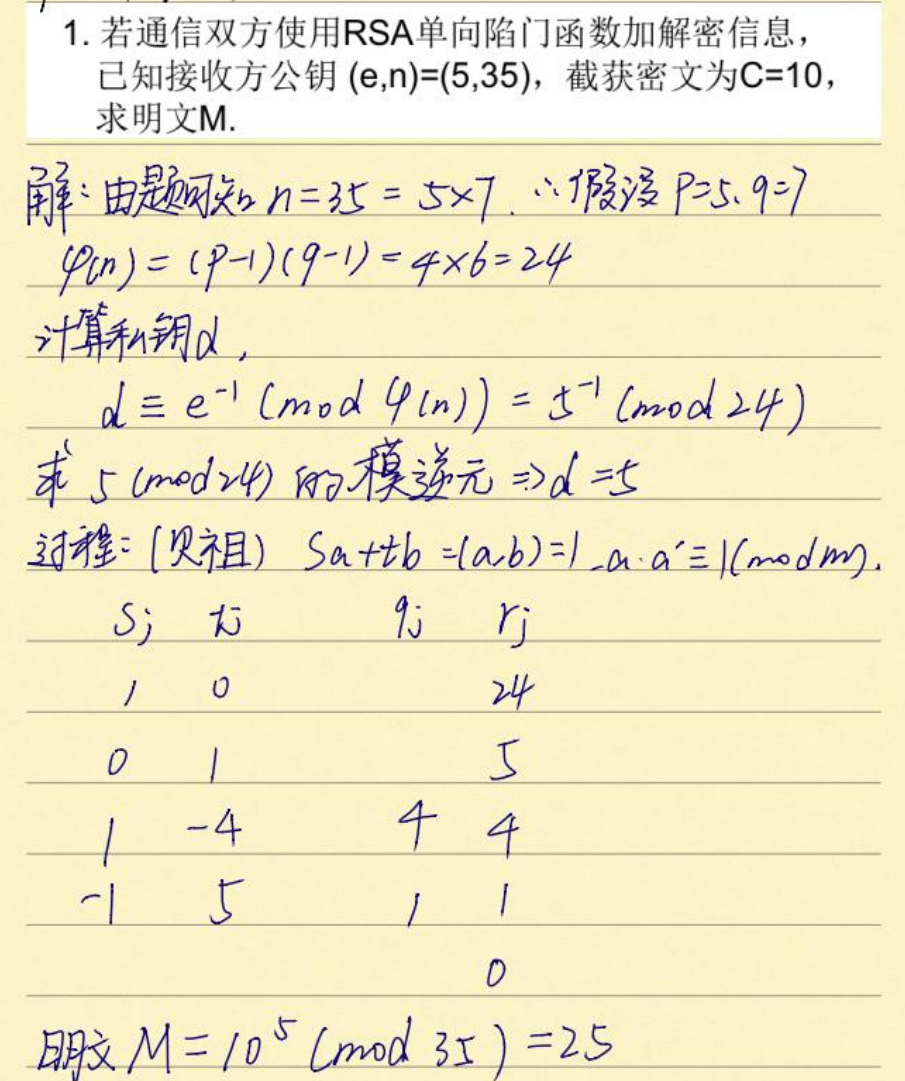 1. 若通信双方使用RSA单向陷门函数加解密信息，
已知接收方公钥 (e,n)=(5,35)，截获密文为C=10，
求明文M.
解：由题可知 n=35=5×7. ∴假设 P=5、q=7
φ(n)=(P-1)(q-1)=4×6=24
计算私钥d，
d≡e⁻¹ (mod φ(n)) = 5⁻¹ (mod 24)
求 5 (mod 24) 的模逆元 ⇒ d=5
过程：(贝祖) Sa+tb=(a,b)=1 a·a′≡1(mod m).
Sj tj qj rj
1 0 24
0 1 5
1 -4 4 4
-1 5 1 1
0
明文 M=10⁵ (mod 35)=25